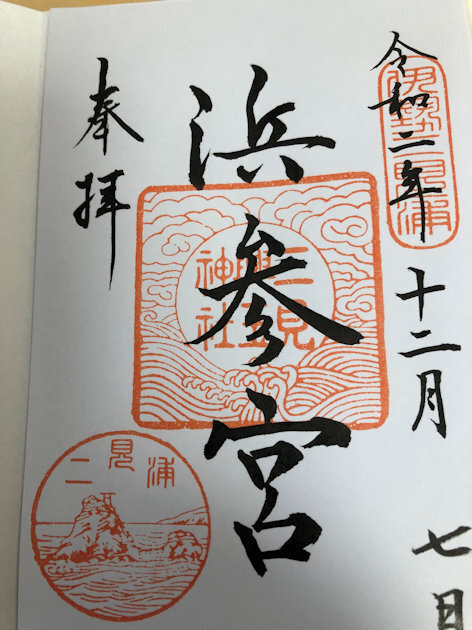 伊勢二見浦
令和二年十二月七日
浜参宮
二見
興玉
神社
奉拝
二見浦